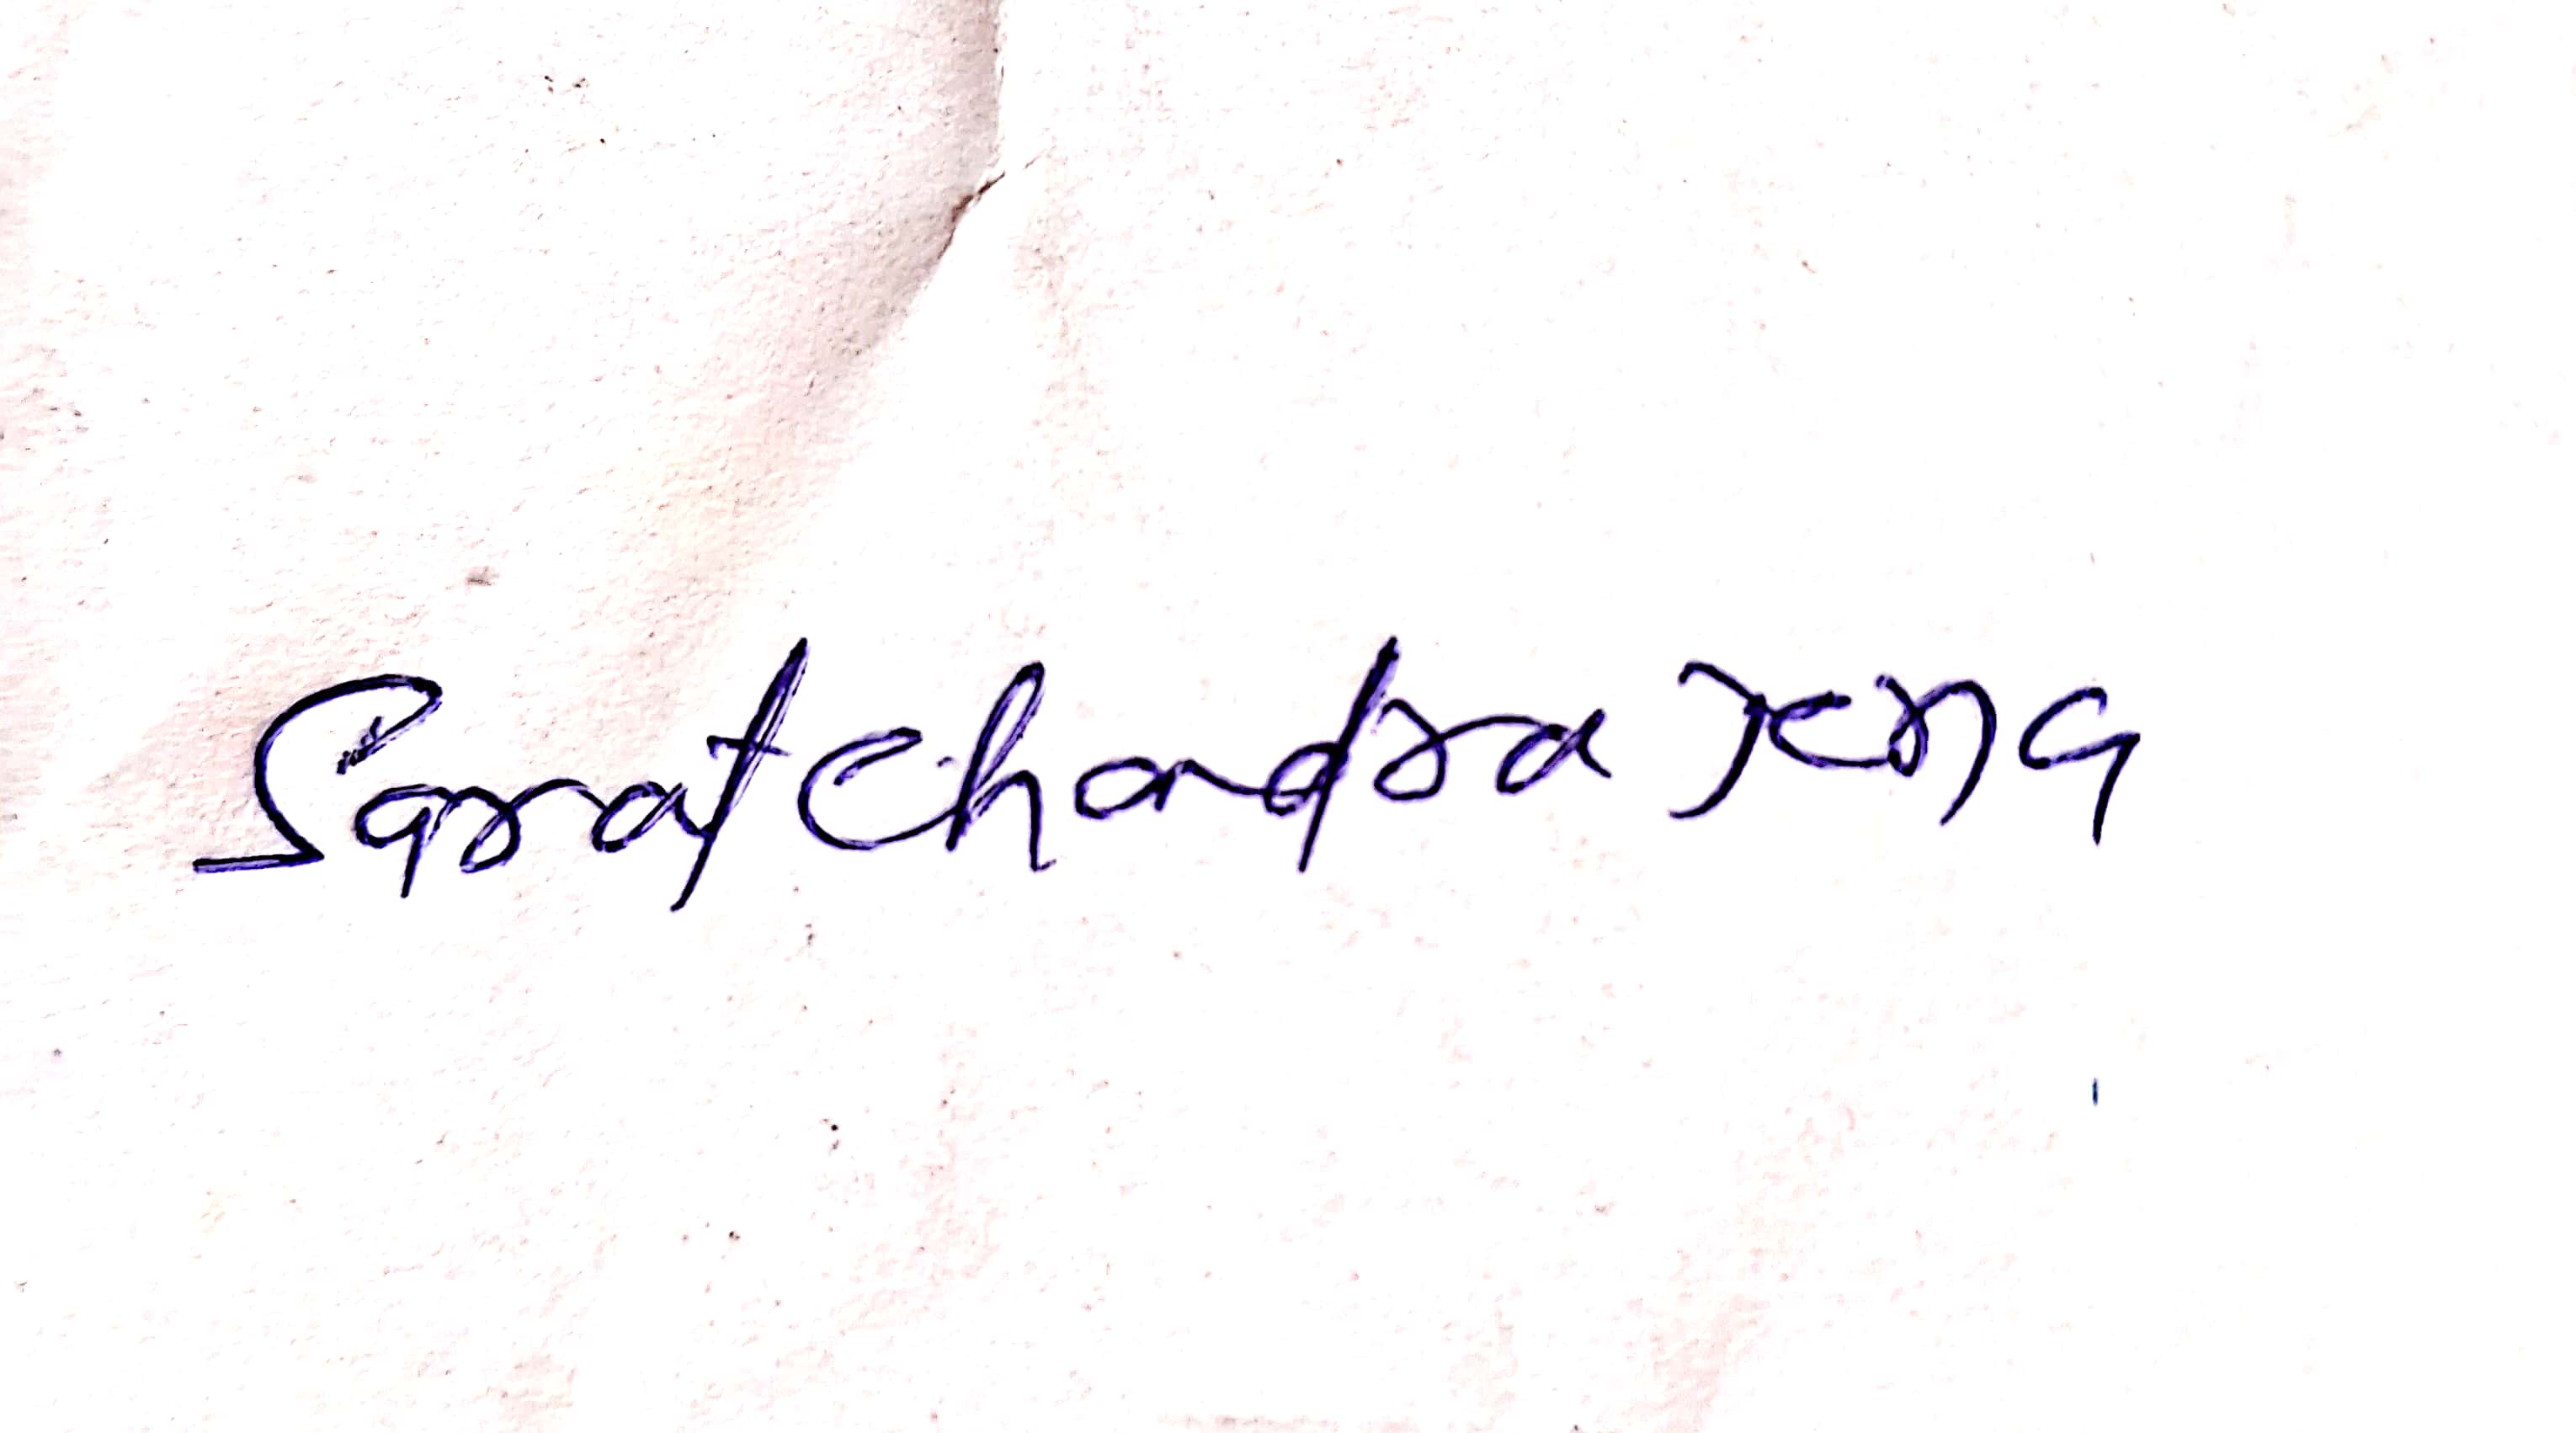 Sarat Chandra Jena